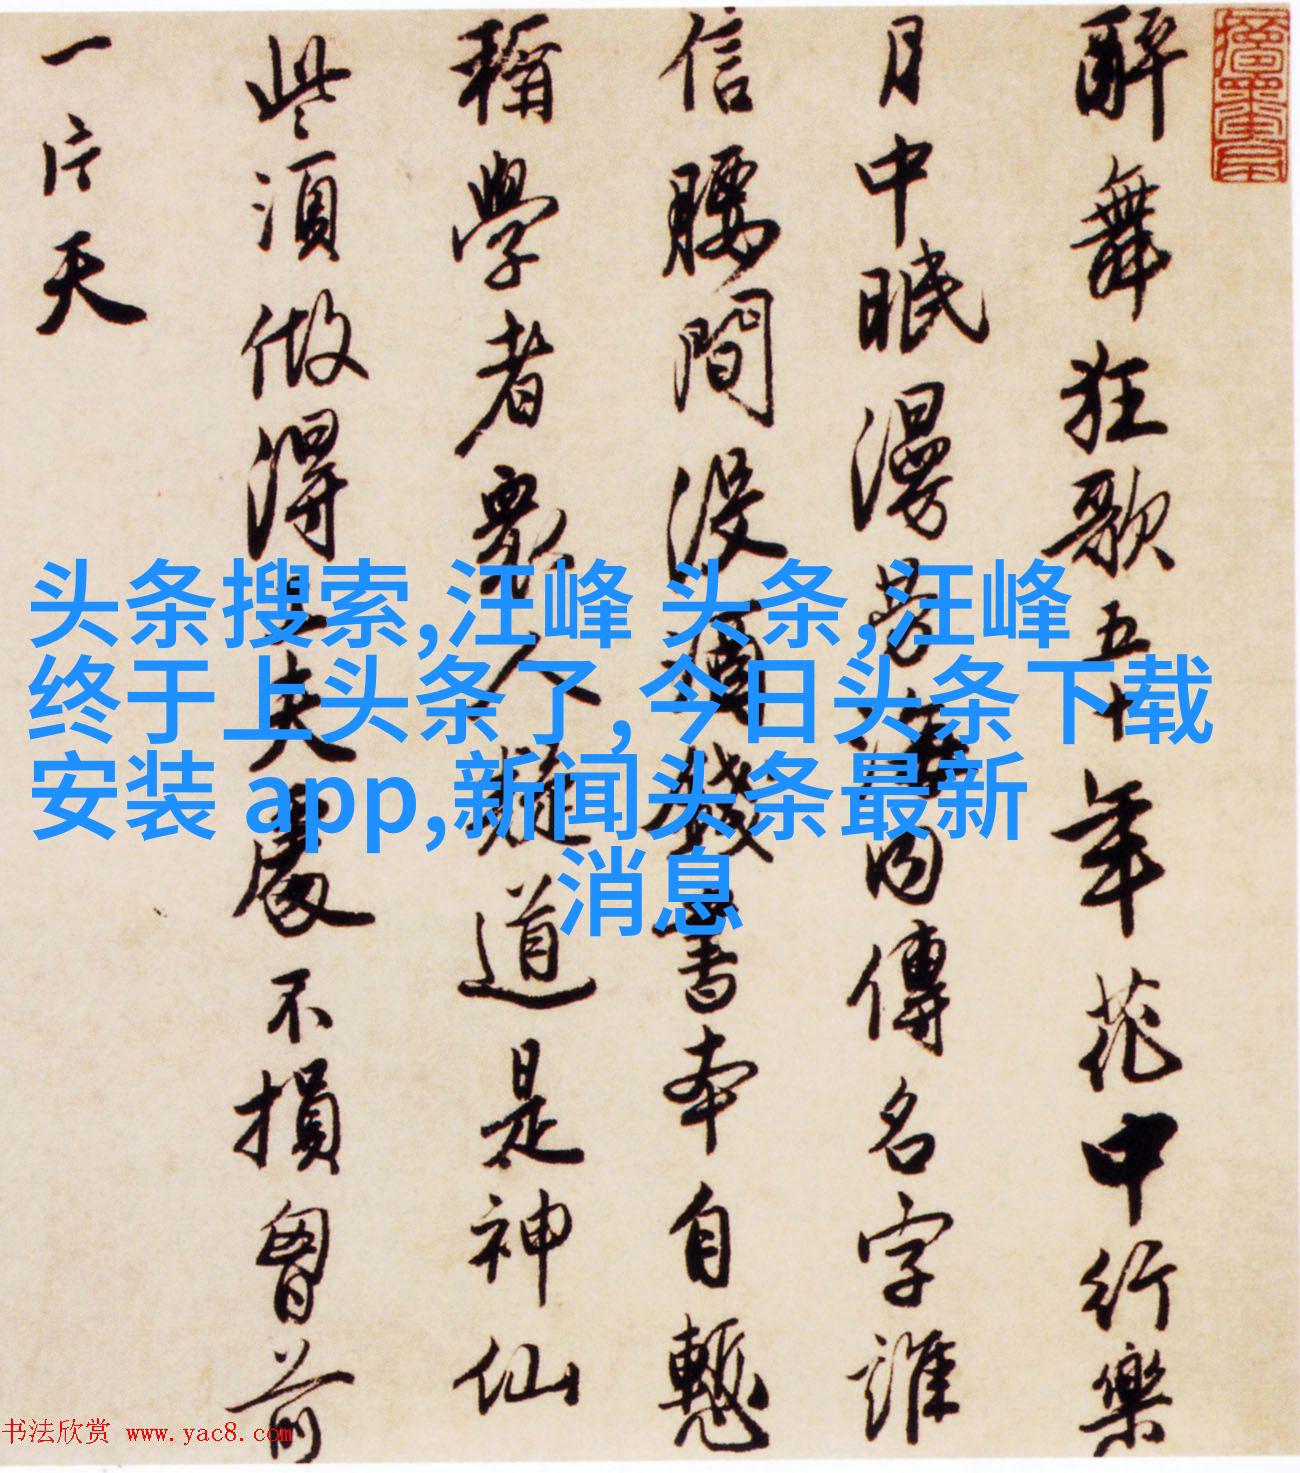 醉舞狂歌五十年花中行樂
月中眠漫勞海內傳名字誰
信腰間沒酒錢書本自慙
稱學者眾人疑道是神仙
些須做得工夫處不損胷前
一片天
头条搜索,汪峰 头条,汪峰
终于上头条了, 今日头条下载
安装 app,新闻头条最新
消息
书法欣赏 www.yac8.com